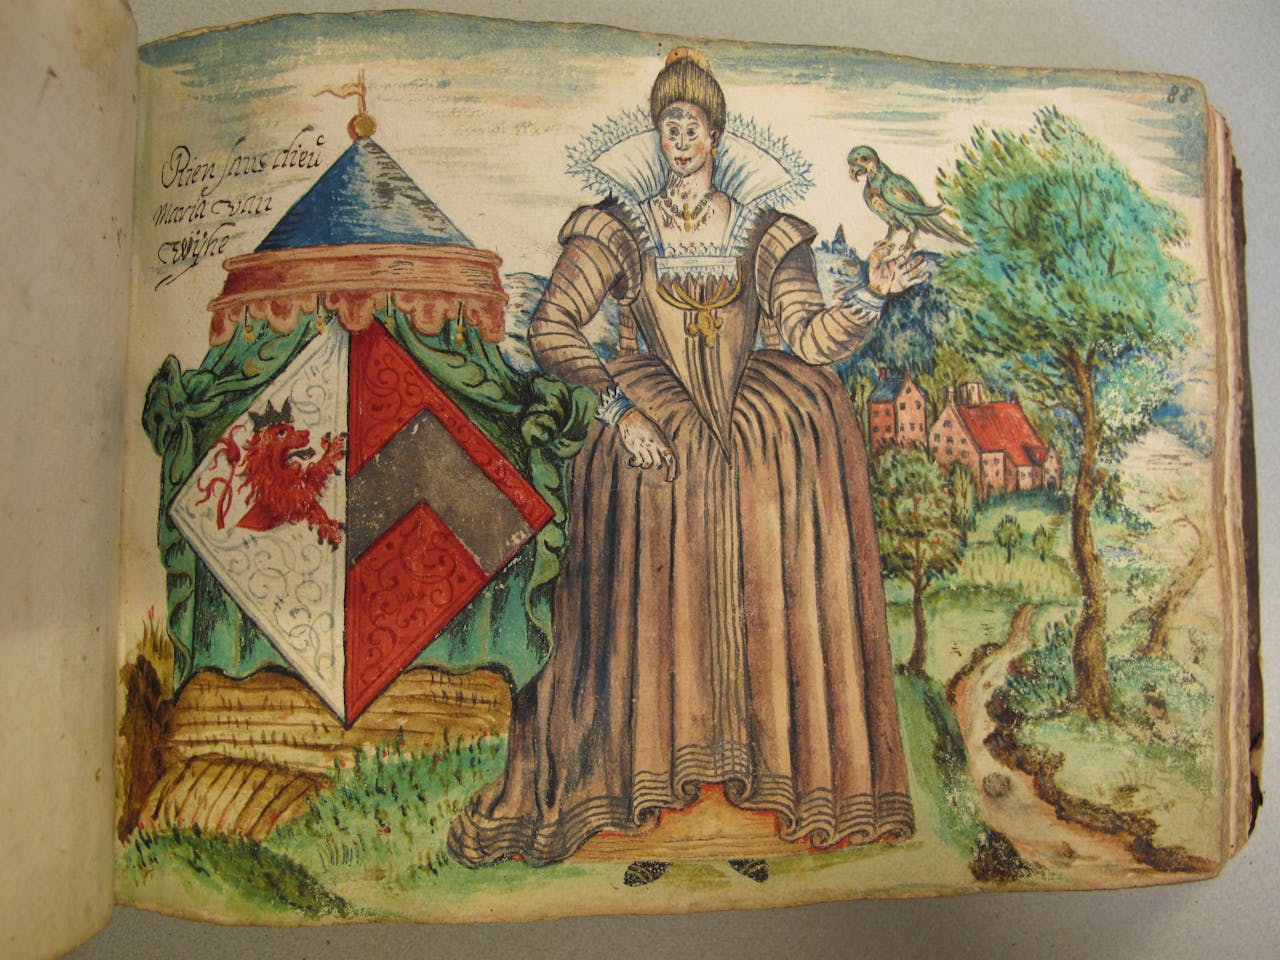 Rien sans dieu
Maria van
Wÿhe
88